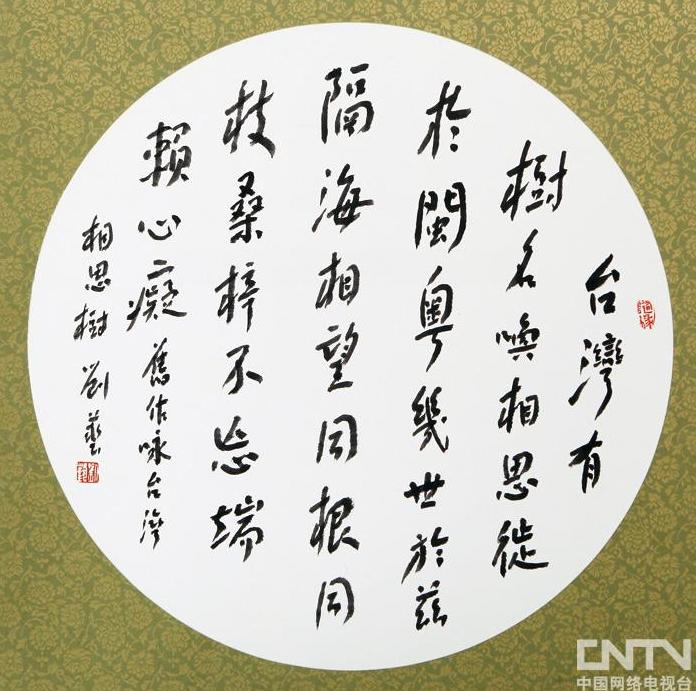 台灣有
樹名喚相思徙
於閩粵幾世於茲
隔海相望同根同
枝桑梓不忘端
賴心癡 舊作咏台灣
相思樹 劉藝
CNTV
中国网络电视台